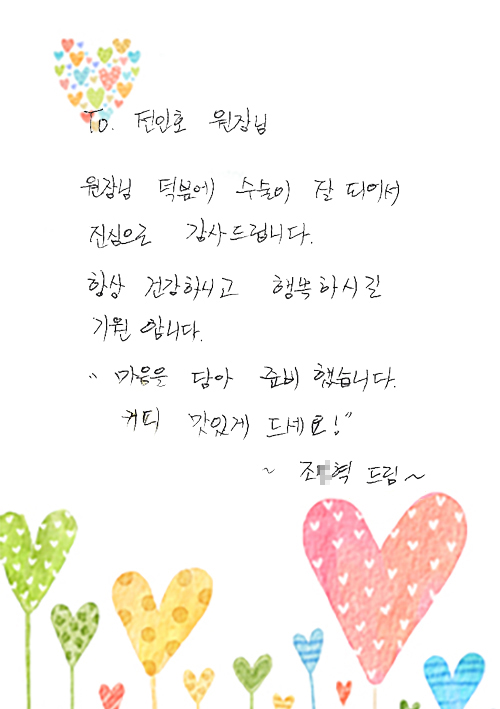 To. 전인호 원장님
원장님 덕분에 수술이 잘 되어서
진심으로 감사드립니다.
항상 건강하시고 행복하시길
기원 합니다.
" 마음을 담아 준비 했습니다.
커피 맛있게 드세요!"
~ 조 혁 드림~